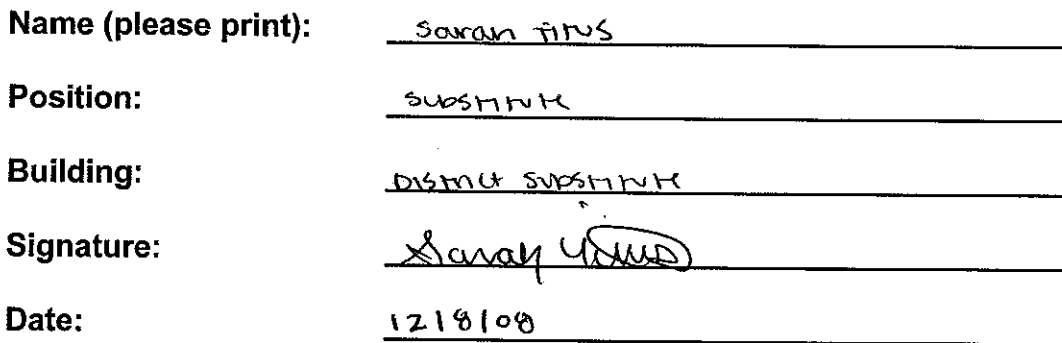 Name (please print): Sarah Titus
Position: substitute
Building: District substitute
Signature: Sarah Titus
Date: 12/8/08